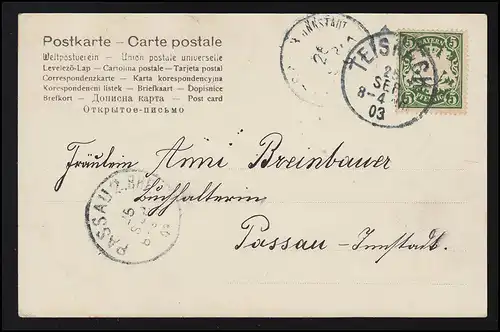 Postkarte – Carte postale
Weltpostverein – Union postale universelle
Levelező-Lap – Cartolina postale – Tarjeta postal
Correspondenzkarte – Karta korespondencyjna
Korespondenční lístek – Briefkaart – Dopisnice
Brefkort – Дописна карта – Post card
Открытое-письмо
INNSTADT
TEISNACH
SEP
8-4
03
BAYERN
5 5
5 5
Fräulein Anni Breinbauer
Buchhalterin
Passau-Innstadt.
PASSAU 2.